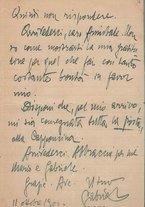 Quindi non rispondere.
Arrivederci, caro fratello. Non
so come mostrarti la mia gratitu
dine per quel che fai con tanto
costante bontà in favor
mio.
Disponi che, pel mio arrivo,
mi sia consegnata tutta la posta,
alla Capponcina.
Arrivederci. Abbraccia per me
Mario e Gabriele.
Tuo
Gabriel
11 ottobre